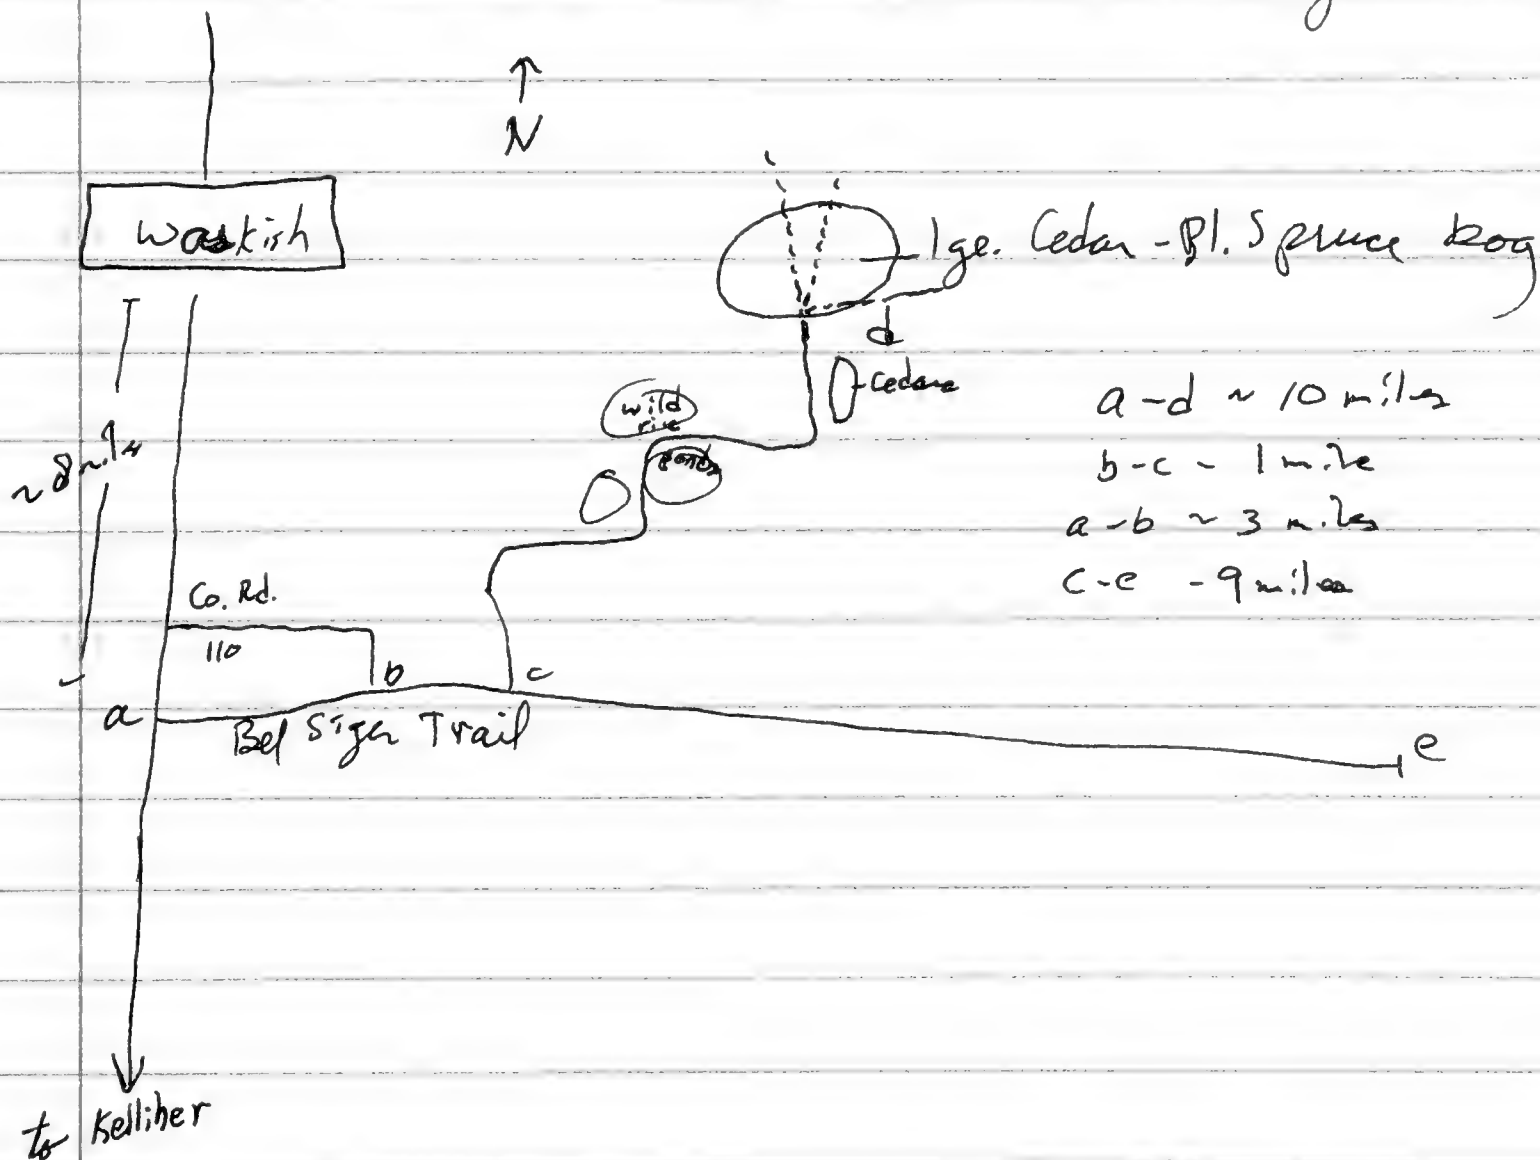 ↑
N
Waskish
lge. Cedar - Bl. Spruce bog
d
Cedars
wild
rice
ponds
a - d ~ 10 miles
b - c - 1 mile
a - b ~ 3 miles
c - e - 9 miles
~ 8 miles
Co. Rd.
110
b
c
a
Trail
e
to Kelliher